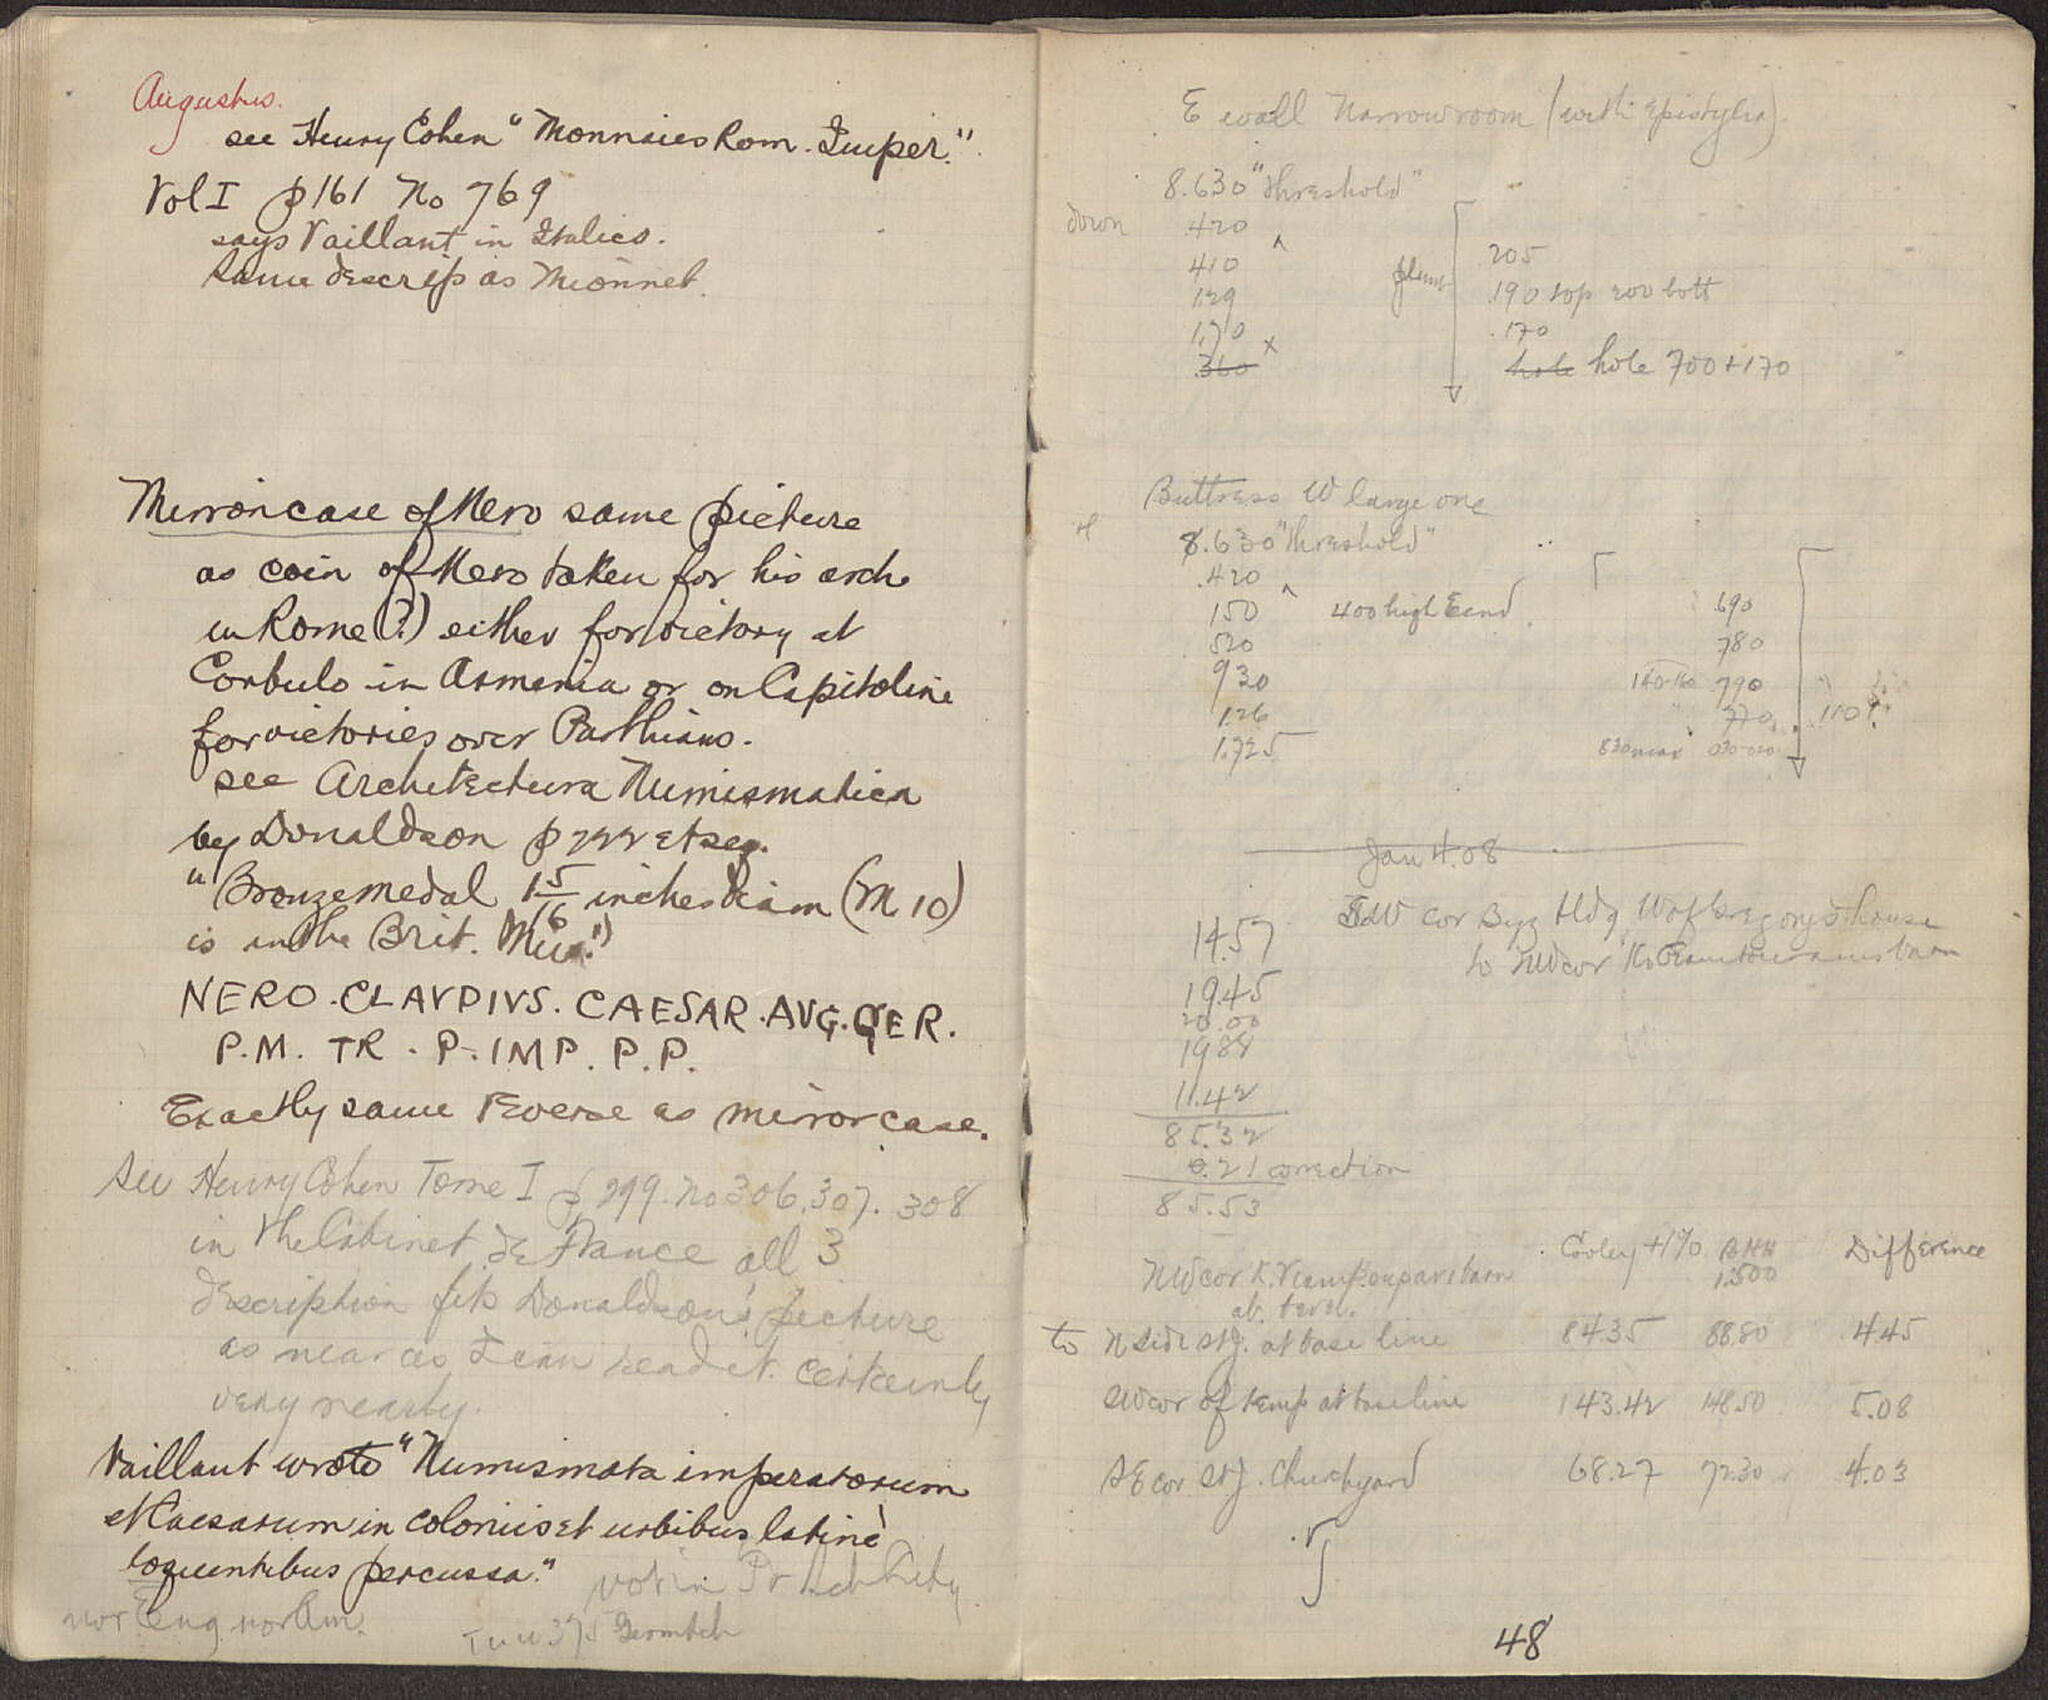 Augustus.
see Henry Cohen "Monnaies Rom. Imper.".
Vol I p161 No 769
says Vaillant in Italics.
same descrip as Mionnet.
Mirror case of Nero same picture
as coin of Nero taken for his arch
in Rome (?) either for victory at
Corbulo in Armenia or on Capitoline
for victories over Parthians.
see Architectura Numismatica
by Donaldson p et seq.
"Bronze medal 1 5/16 inches diam (M 10)
is in the Brit. Mus."
NERO. CLAVDIVS. CAESAR. AVG. GER.
P.M. TR. P. IMP. P.P.
Exactly same reverse as mirror case.
See Henry Cohen Tome I p 299. no 306, 307. 308
in the Cabinet de France all 3
description fits Donaldson's picture
as near as I can read it. certainly
very nearly.
Vaillant wrote "Numismata imperatorum
et Caesarum in coloniis et urbibus latine
loquentibus percussa." not in
nor Eng. nor Am.
E wall Narrow room (with epistylia)
8.630 "threshold"
down .420
410
1.29
1.70 x
360
plumb
205
.190 top 200 bott
.170
hole hole 700+170
Buttress W large one
8.630 "threshold"
.420
150 400 high E end
520
930
1.26
1.725
690
780
790
770 110?
830 max 030-020
Jan 4.08
SW cor Byz bldg W of Gregory's house
to NW cor barn
14.57
19.45
20.00
1988
11.42
85.32
0.21 correction
85.53
Cooley +1% BHH 1:500 Difference
NW cor K. barn
to N side St J. at base line 84.35 88.80 4.45
SW cor of temp at base line 143.42 148.50 5.08
SE cor St J. Churchyard 68.27 72.30 4.03
48